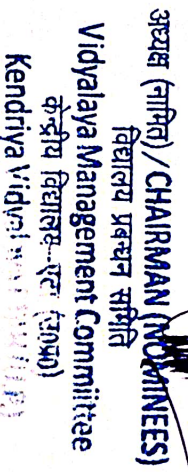 अध्यक्ष (नामित)/CHAIRMAN (NOMINEES)
विद्यालय प्रबन्धन समिति
Vidyalaya Management Committee
केन्द्रीय विद्यालय (उ०प्र०)
Kendriya